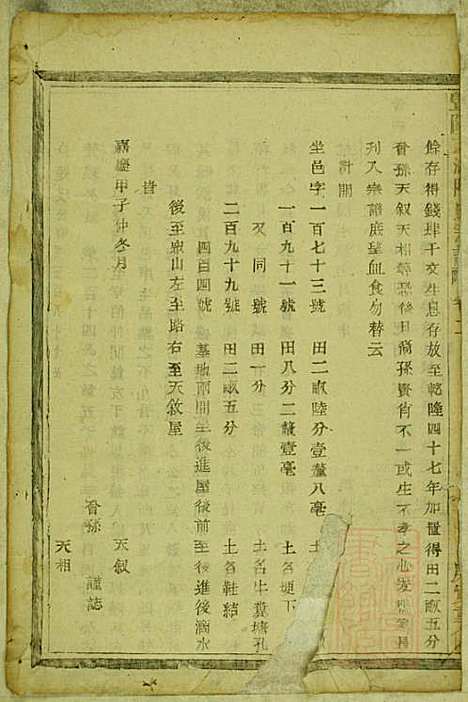 餘存得錢肆千文生息存放至乾隆四十七年加置得田二畝五分
耆孫天叙天相等恐後日裔孫賢肖不一或生不孝之心爰將契具
刋入宗譜庶望血食勿替云
計開
坐邑字一百七十三號 田二畝陸分壹釐八毫 土
一百九十一號 田八分二釐壹毫 土名塘下
又同號 田一分 土名牛糞塘孔
二百九十九號 田二畝五分 土名鞋結
四百四號 基地兩間至後進屋後前至後進後滴水
後至衆山左至路右至天叙屋
旹
嘉慶甲子仲冬月
耆孫 天叙 謹誌
天相